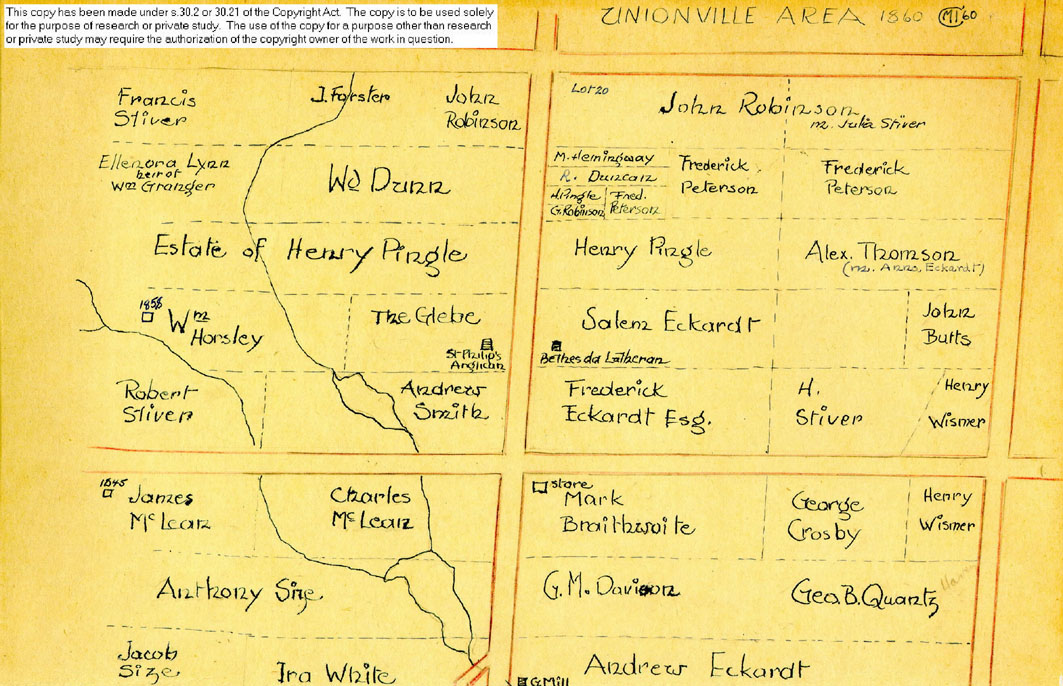 This copy has been made under s.30.2 or 30.21 of the Copyright Act. The copy is to be used solely
for the purpose of research or private study. The use of the copy for a purpose other than research
or private study may require the authorization of the copyright owner of the work in question.
UNIONVILLE AREA 1860 MT 60
Francis
Stiver
J. Forster
John
Robinson
Ellenora Lynn
heir of
Wm Granger
Wd Dunn
Estate of Henry Pingle
1856
Wm
Horsley
The Glebe
St Philip's
Anglican
Robert
Stiver
Andrew
Smith
Lot 20
John Robinson
m. Julia Stiver
M. Hemingway
R. Duncan
H. Pingle
G. Robinson
Fred.
Peterson
Frederick
Peterson
Frederick
Peterson
Henry Pingle
Alex. Thomson
(m. Anna Eckardt)
Salem Eckardt
John
Butts
Bethesda Lutheran
Frederick
Eckardt Esq.
H.
Stiver
Henry
Wismer
1845
James
McLean
Charles
McLean
store
Mark
Braithwaite
George
Crosby
Henry
Wismer
Anthony Size
G. M. Davison
Geo. B. Quantz
Jacob
Size
Ira White
G. Mill
Andrew Eckardt